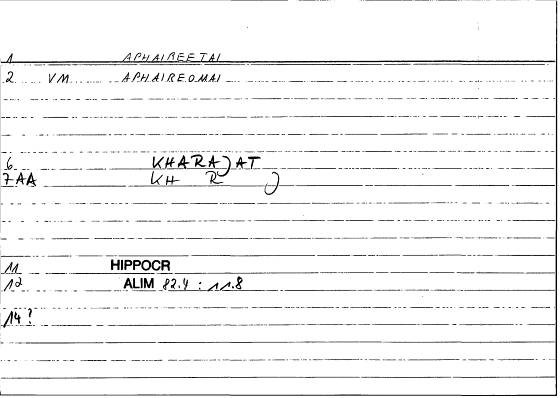 1 APHAIREETAI
2 VM APHAIREOMAI
6 KHARAJAT
7AA KH R J
11 HIPPOCR
12 ALIM 82.4 : 11.8
14?